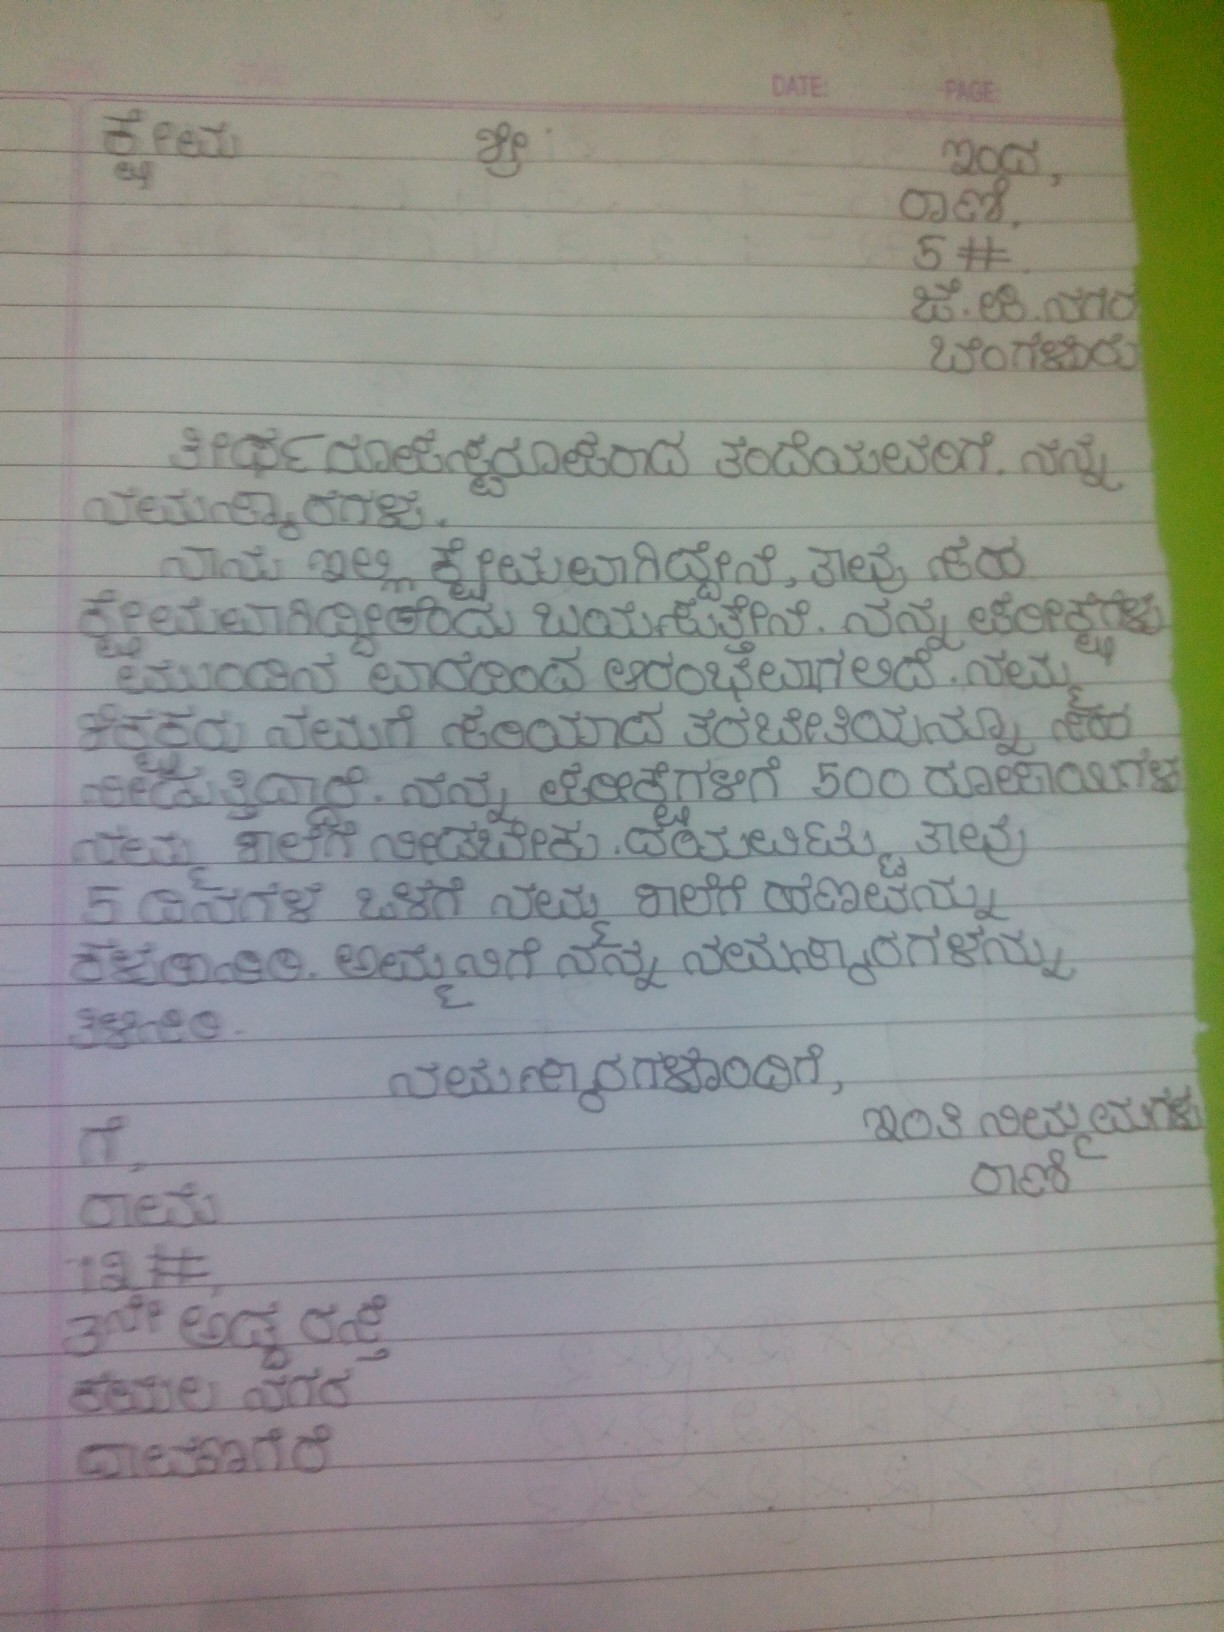 DATE: PAGE:
ಕ್ಷೇಮ ಶ್ರೀ ಇಂದ,
ರಾಣಿ.
5 #
ಜೆ.ಪಿ.ನಗರ
ಬೆಂಗಳೂರು
ತೀರ್ಥ ರೂಪ ತಂದೆಯವರಿಗೆ. ನನ್ನ
ನಮಸ್ಕಾರಗಳು.
ನಾನು ಇಲ್ಲಿ ಕ್ಷೇಮವಾಗಿದ್ದೇನೆ, ತಾವು ಸಹ
ಕ್ಷೇಮವಾಗಿದ್ದೀರೆಂದು ಬಯಸುತ್ತೇನೆ. ನನ್ನ ಪರೀಕ್ಷೆಗಳು
ಮುಂದಿನ ವಾರದಿಂದ ಆರಂಭವಾಗಲಿದೆ. ನಮ್ಮ
ಶಿಕ್ಷಕರು ನಮಗೆ ಸರಿಯಾದ ತರಬೇತಿಯನ್ನು ಸಹ
ನೀಡುತ್ತಿದಾರೆ. ನನ್ನ ಪರೀಕ್ಷೆಗಳಿಗೆ 500 ರೂಪಾಯಿಗಳ
ನಮ್ಮ ಶಾಲೆಗೆ ನೀಡಬೇಕು. ದಯವಿಟ್ಟು ತಾವು
5 ದಿನಗಳ ಒಳಗೆ ನಮ್ಮ ಶಾಲೆಗೆ ಹಣವನ್ನು
ಕಳುಹಿಸಿರಿ. ಅಮ್ಮನಿಗೆ ನನ್ನ ನಮಸ್ಕಾರಗಳನ್ನು
ತಿಳಿಸಿರಿ.
ನಮಸ್ಕಾರಗಳೊಂದಿಗೆ,
ಇಂತಿ ನಿಮ್ಮ ಮಗಳು
ರಾಣಿ
ಗೆ,
ರಾಮು
12 #,
3ನೇ ಅಡ್ಡ ರಸ್ತೆ
ಕಮಲ ನಗರ
ದಾವಣಗೆರೆ